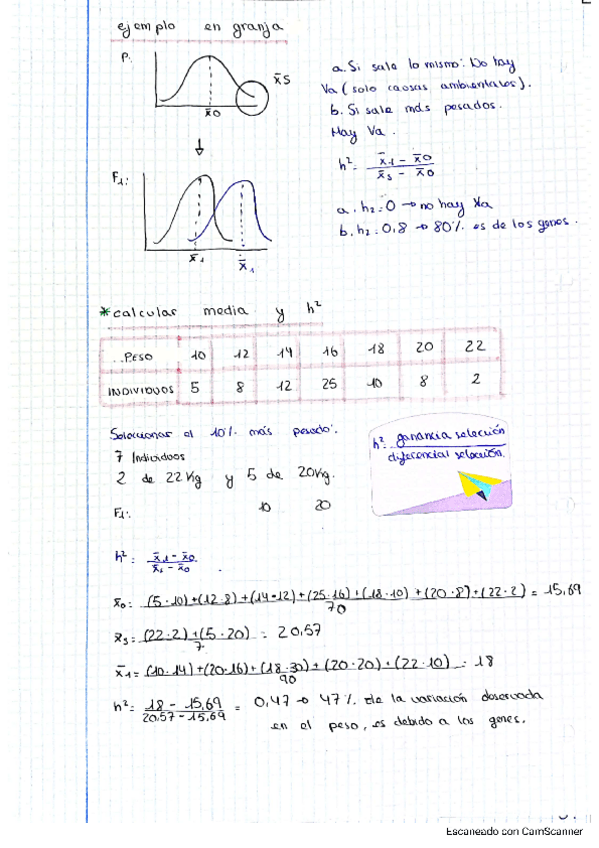 ejemplo en granja
P:
x̄S
x̄0
F1:
x̄1
x̄1
a. Si sale lo mismo: No hay
Va (solo causas ambientales).
b. Si sale más pesados.
Hay Va.
h²: x̄1 - x̄0 / x̄s - x̄0
a. h2: 0 → no hay Va
b. h2: 0,8 → 80% es de los genes.
*calcular media y h²
PESO 10 12 14 16 18 20 22
INDIVIDUOS 5 8 12 25 10 8 2
Seleccionar el 10% más pesado:
7 Individuos
2 de 22Kg y 5 de 20Kg.
F1: 10 20
h²: ganancia selección
diferencial selección
h²: x̄1 - x̄0 / x̄s - x̄0
x̄0: (5·10)+(12·8)+(14·12)+(25·16)+(18·10)+(20·8)+(22·2) / 70 = 15,69
x̄s = (22·2)+(5·20) / 7 = 20,57
x̄1 = (10·14)+(20·16)+(18·30)+(20·20)+(22·10) / 90 : 18
h²: 18 - 15,69 / 20,57 - 15,69 = 0,47 → 47% de la variación observada
en el peso, es debido a los genes.
Escaneado con CamScanner